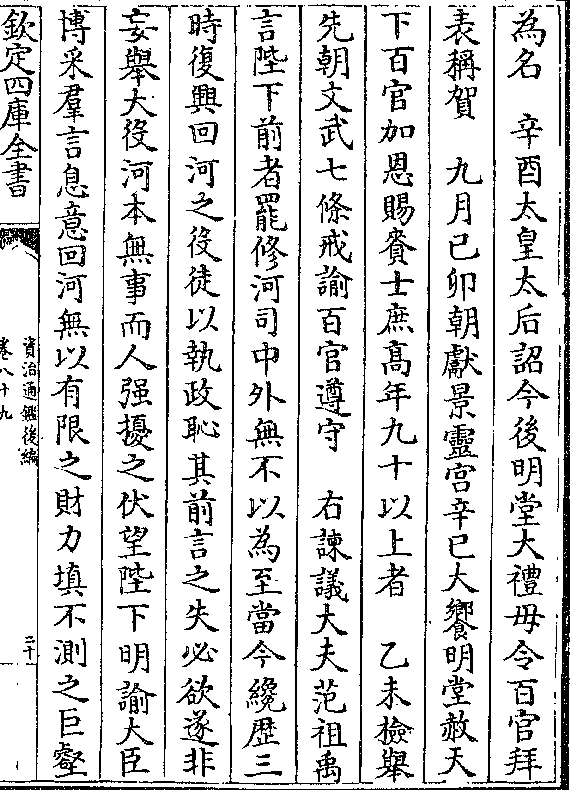 為名　辛酉太皇太后詔今後明堂大禮毋令百官拜
表稱賀　九月己卯朝獻景靈宫辛巳大饗明堂赦天
下百官加恩賜賚士庶髙年九十以上者　乙未檢舉
先朝文武七條戒諭百官遵守　右諫議大夫范祖禹
言陛下前者罷修河司中外無不以為至當今纔歴三
時復興回河之役徒以執政恥其前言之失必欲遂非
妄舉大役河本無事而人强擾之伏望陛下明諭大臣
博采羣言息意回河無以有限之財力填不測之巨壑
欽定四庫全書
資治通鑑後編
卷八十九
二十